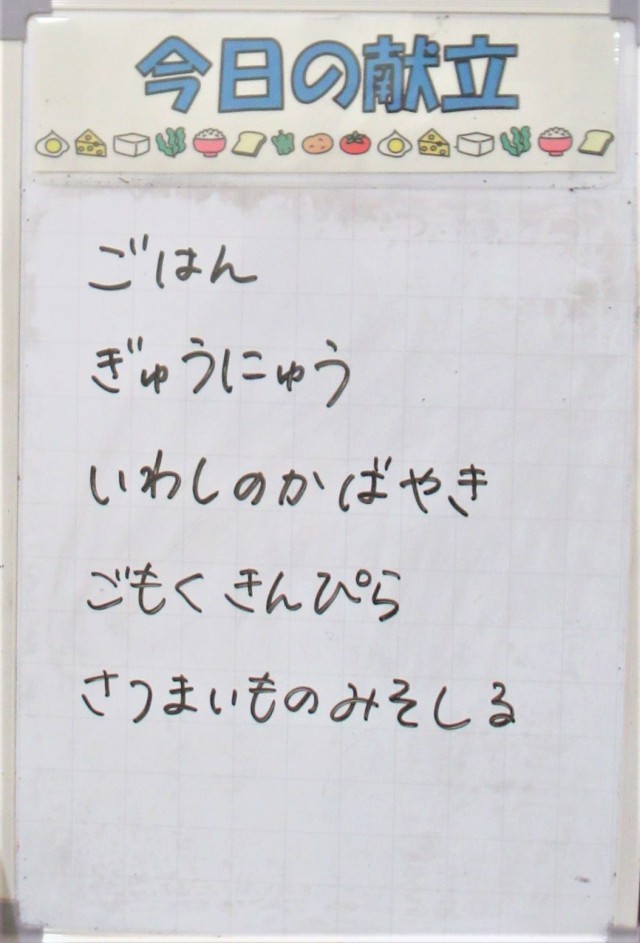 今日の献立
ごはん
ぎゅうにゅう
いわしのかばやき
ごもくきんぴら
さつまいものみそしる